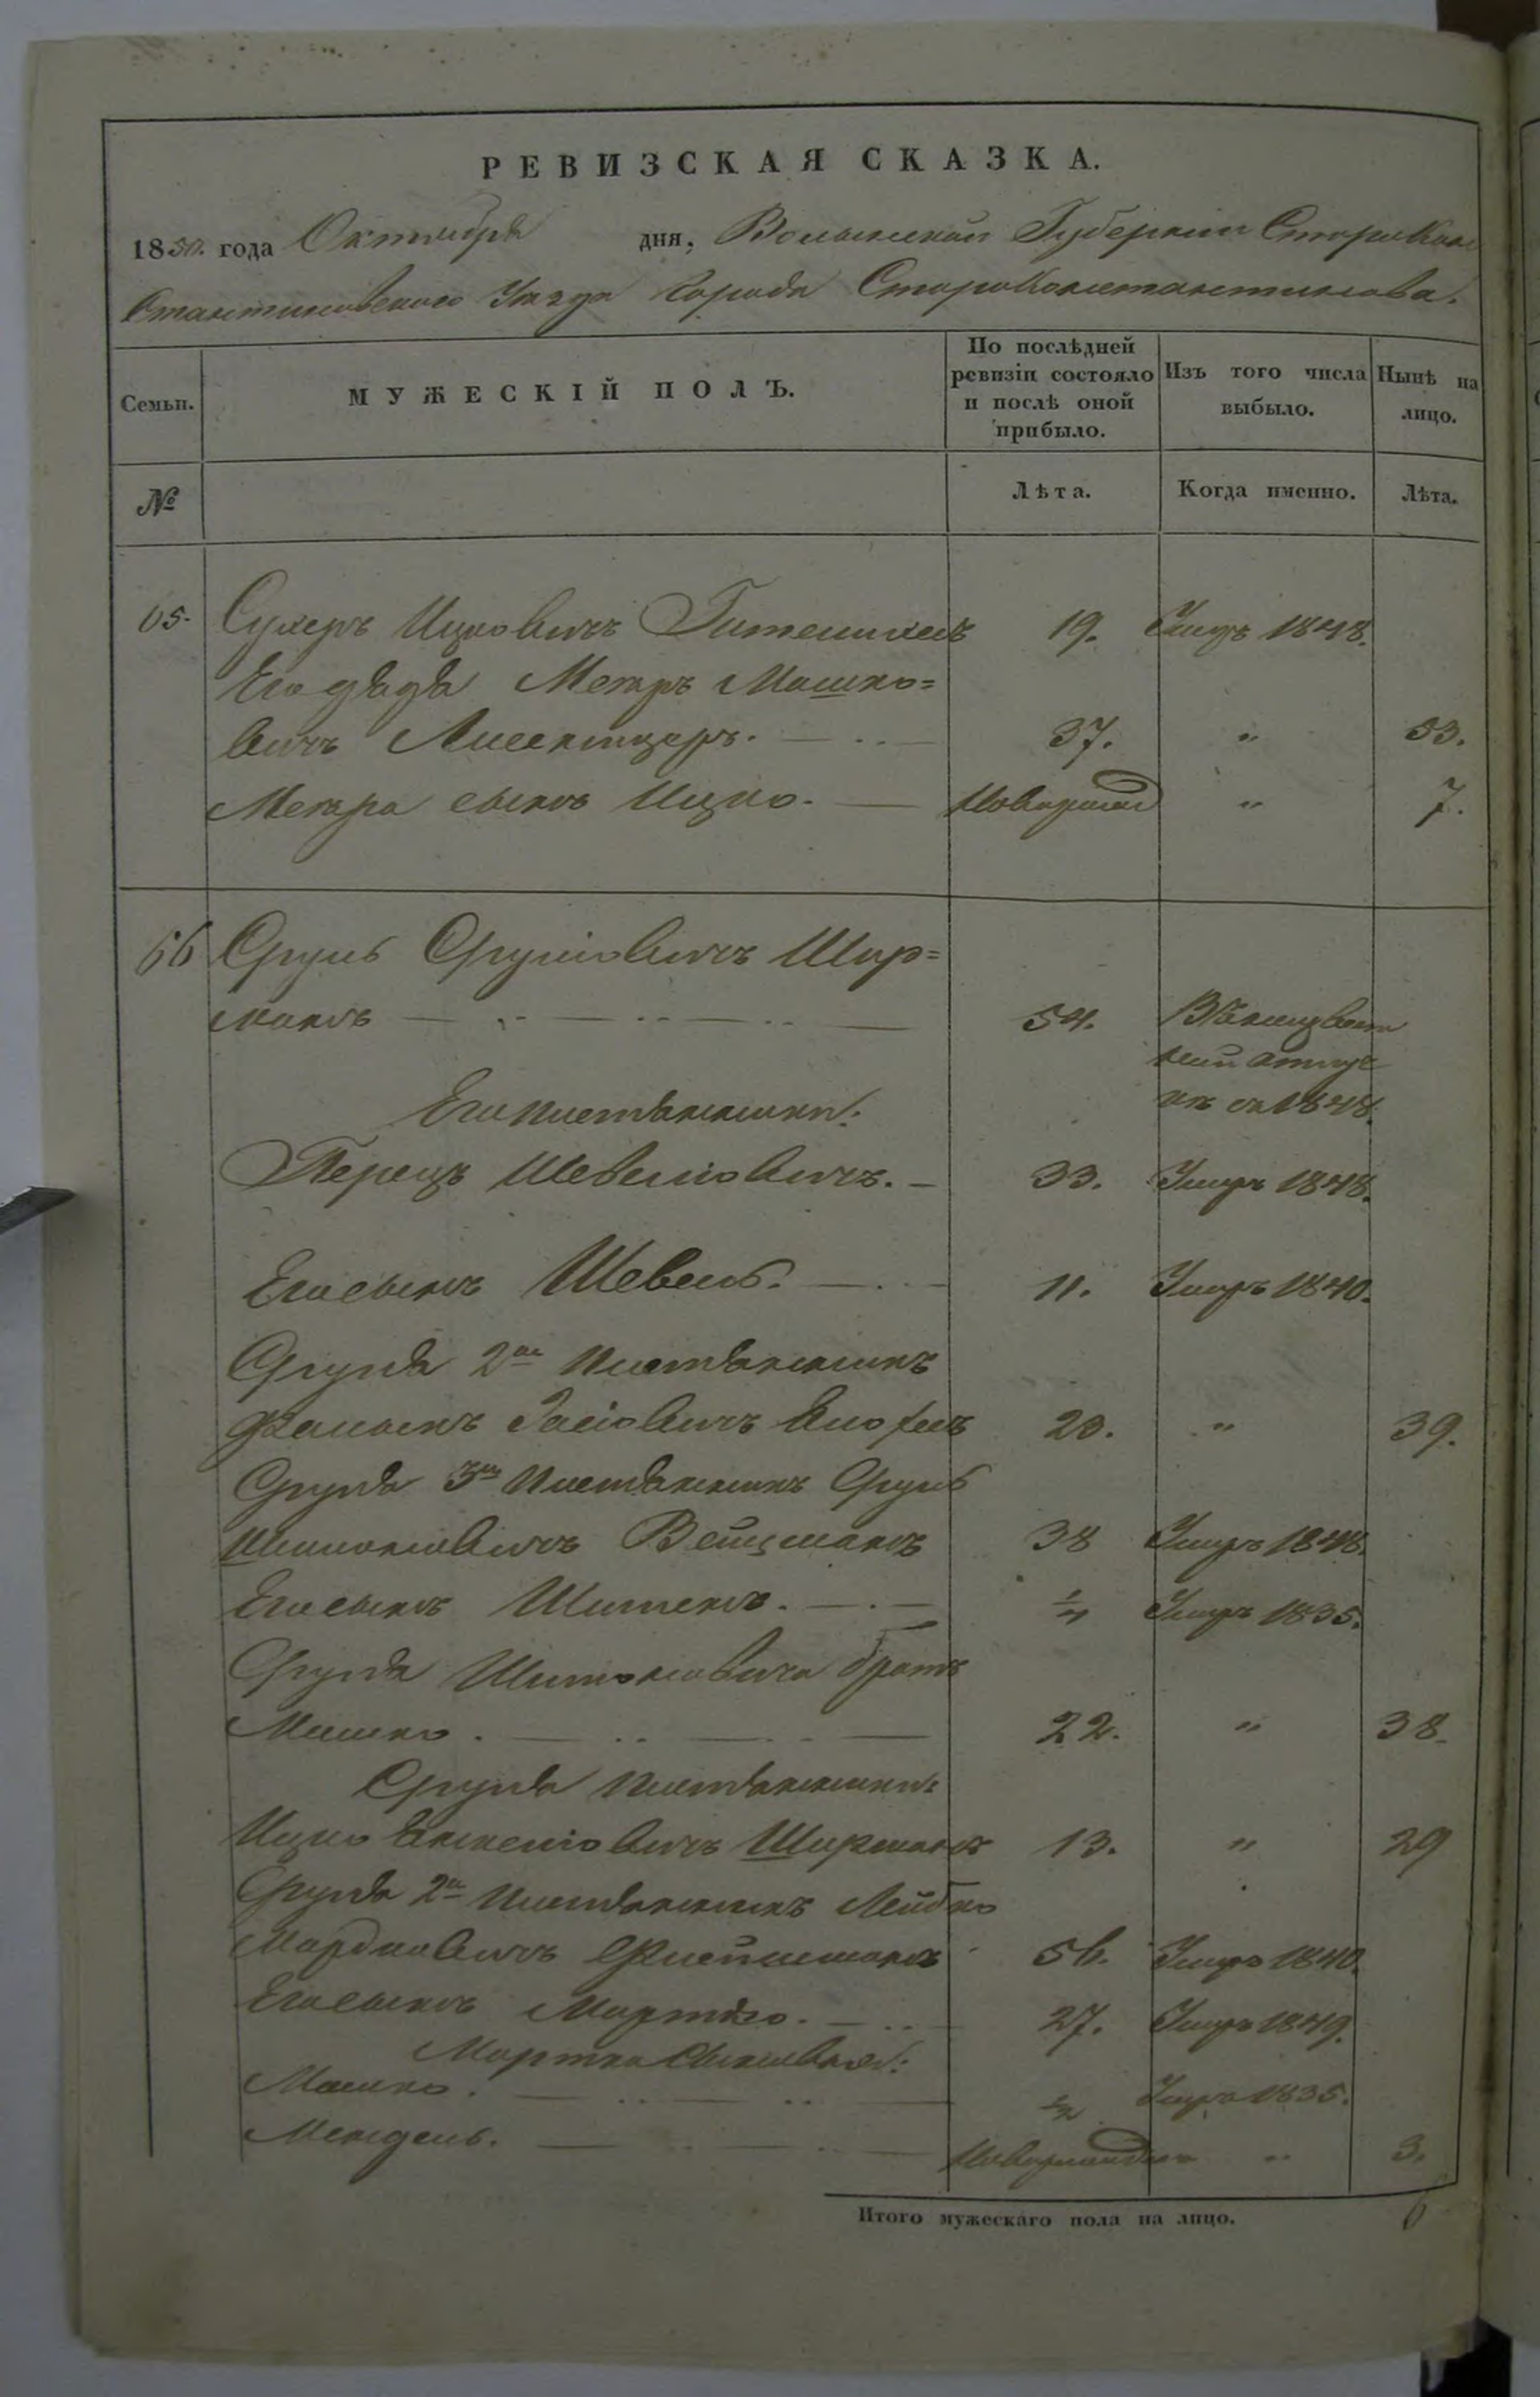 РЕВИЗСКАЯ СКАЗКА.
1850. года Октября дня, Волынской Губернiи Старокон
стантиновского Уѣзда города Староконстантинова.
Семьи. МУЖЕСКIЙ ПОЛЪ. По послѣдней ревизiи состояло и послѣ оной прибыло. Изъ того числа выбыло. Нынѣ на лицо.
№ Лѣта. Когда именно. Лѣта.
65. Сухеръ Ицковичъ 19. Умеръ 1848.
Его дядя Мошко=
вичъ 37. „ 53.
сынъ Ицко. Новорожд „ 7.
66 Сруль Срулiовичъ Шир=
манъ 54. В безызвѣст
ной отлуч
кѣ съ 1848.
Его племянники:
Перецъ Шевелiовичъ. 33. Умеръ 1848.
Его сынъ Шевель. 11. Умеръ 1840.
Сруля 2й племянникъ
23. „ 39.
Сруля 3й племянникъ Сруль
Шимоновичъ Вейцманъ 38 Умеръ 1848.
Его сынъ Шимонъ. Умеръ 1835.
Сруля Шимоновича братъ
Мошко. 22. „ 38.
Сруля племянники:
Ицко Ширманъ 13. „ 29
Сруля 2й племянникъ Лейбко
Мордковичъ Флейшманъ 56. Умеръ 1840.
Его сынъ Мортко. 27. Умеръ 1849.
Мортка сыновья:
Мошко. 1/2 Умеръ 1835.
Мендель. Новорожден „ 3.
Итого мужескаго пола на лицо. 6